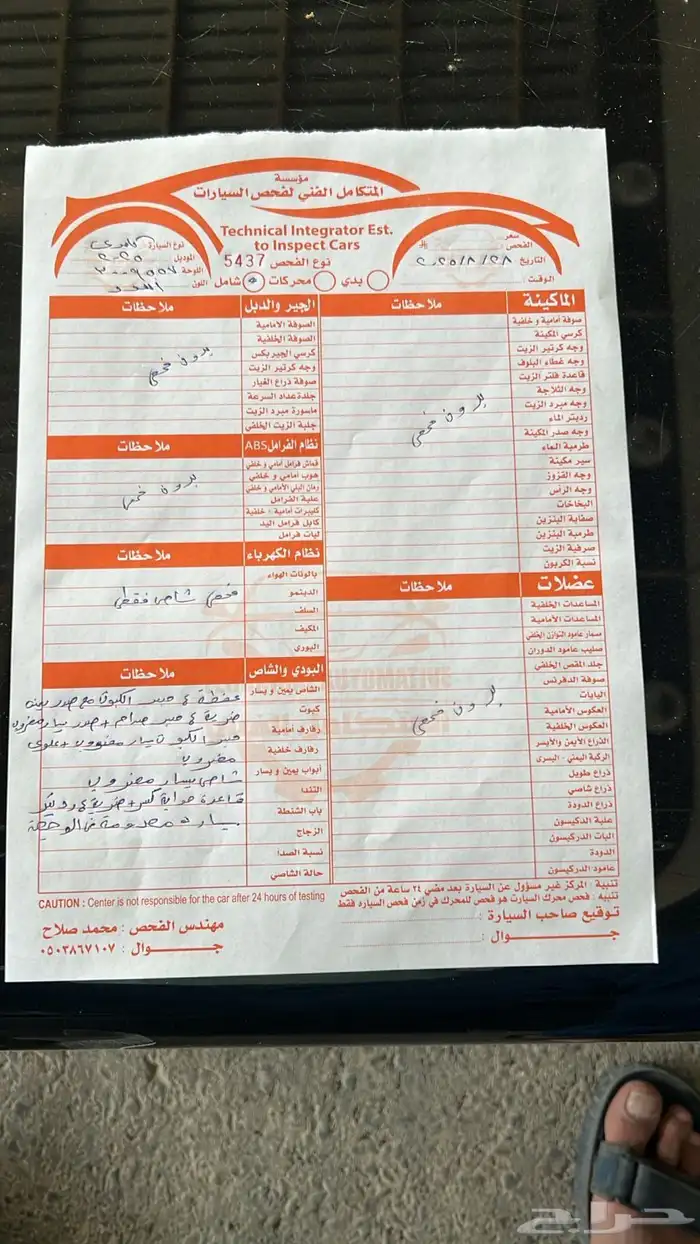 مؤسسة
المتكامل الفني لفحص السيارات
Technical Integrator Est.
to Inspect Cars
سعر الفحص
التاريخ ٢٠٢٥/٨/٢٨
الوقت
نوع السيارة
الموديل ٢٠٢٥
اللوحة
اللون
5437 نوع الفحص
بدي محركات شامل
الماكينة ملاحظات
صوفة أمامية و خلفية
كرسي المكينة
وجه كرتير الزيت
وجه غطاء البلوف
قاعدة فلتر الزيت
وجه الثلاجة
وجه مبرد الزيت
رديتر الماء
وجه صدر المكينة
طرمبة الماء
سير مكينة
وجه القزوز
وجه الرأس
البخاخات
صفاية البنزين
طرمبة البنزين
صرفية الزيت
نسبة الكربون
بدون فحص
عضلات ملاحظات
المساعدات الخلفية
المساعدات الأمامية
مسمار عامود التوازن الخلفي
صليب عامود الدوران
جلد المقص الخلفي
صوفة الدفرنس
البابات
العكوس الأمامية
العكوس الخلفية
الذراع الأيمن والأيسر
الركبة اليمنى - اليسرى
ذراع طويل
ذراع شاصي
ذراع الدودة
علبة الدكيسون
اليات الدركيسون
الدودة
عامود الدركيسون
بدون فحص
الجير والدبل ملاحظات
الصوفة الأمامية
الصوفة الخلفية
كرسي الجيربكس
وجه كرتير الزيت
صوفة ذراع الغيار
جلدة عداد السرعة
ماسورة مبرد الزيت
جلبة الزيت الخلفي
بدون فحص
نظام الفرامل ABS ملاحظات
قماش فرامل أمامي و خلفي
هوب أمامي و خلفي
رمان البلي الأمامي و خلفي
علبة الفرامل
كليبرات أمامية - خلفية
كابل فرامل اليد
ليات فرامل
بدون فحص
نظام الكهرباء ملاحظات
بالونات الهواء
الدينمو
السلف
المكيف
البوري
فحص شاص فقط
البودي والشاص ملاحظات
الشاص يمين و يسار
كبوت
رفارف أمامية
رفارف خلفية
أبواب يمين و يسار
التندا
باب الشنطة
الزجاج
نسبة الصدا
حالة الشاصي
مضروب
شاص يسار مضروب
CAUTION : Center is not responsible for the car after 24 hours of testing
تنبية : المركز غير مسؤول عن السيارة بعد مضي ٢٤ ساعة من الفحص
تنبيه : فحص محرك السيارت هو فحص للمحرك في زمن فحص السياره فقط
توقيع صاحب السيارة :
جـــوال :
مهندس الفحص : محمد صلاح
جـــوال : ٠٥٠٣٨٦٧١٠٧
حراج